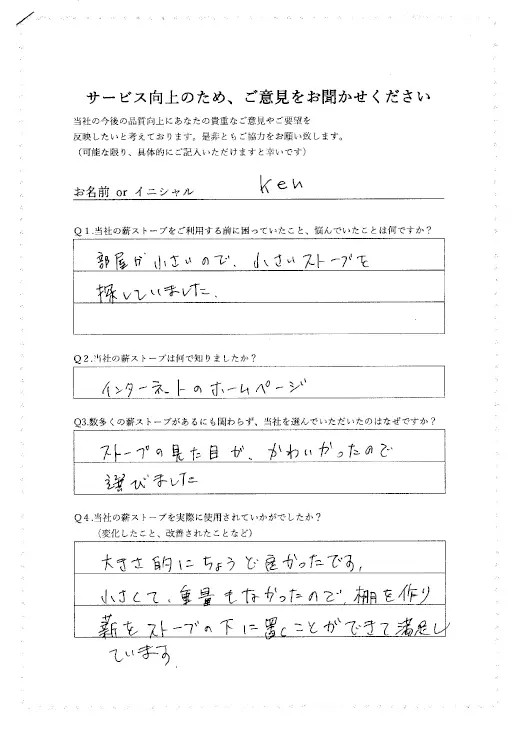 サービス向上のため、ご意見をお聞かせください
当社の今後の品質向上にあなたの貴重なご意見やご要望を
反映したいと考えております。是非ともご協力をお願い致します。
（可能な限り、具体的にご記入いただけますと幸いです）
お名前 or イニシャル Ken
Q1.当社の薪ストーブをご利用する前に困っていたこと、悩んでいたことは何ですか？
部屋が小さいので、小さいストーブを
探していました.
Q2.当社の薪ストーブは何で知りましたか？
インターネットのホームページ
Q3.数多くの薪ストーブがあるにも関わらず、当社を選んでいただいたのはなぜですか？
ストーブの見た目が、かわいかったので
選びました
Q4.当社の薪ストーブを実際に使用されていかがでしたか？
（変化したこと、改善されたことなど）
大きさ的にちょうど良かったです,
小さくて、重量もなかったので、棚を作り
薪をストーブの下に置くことができて満足し
ています.